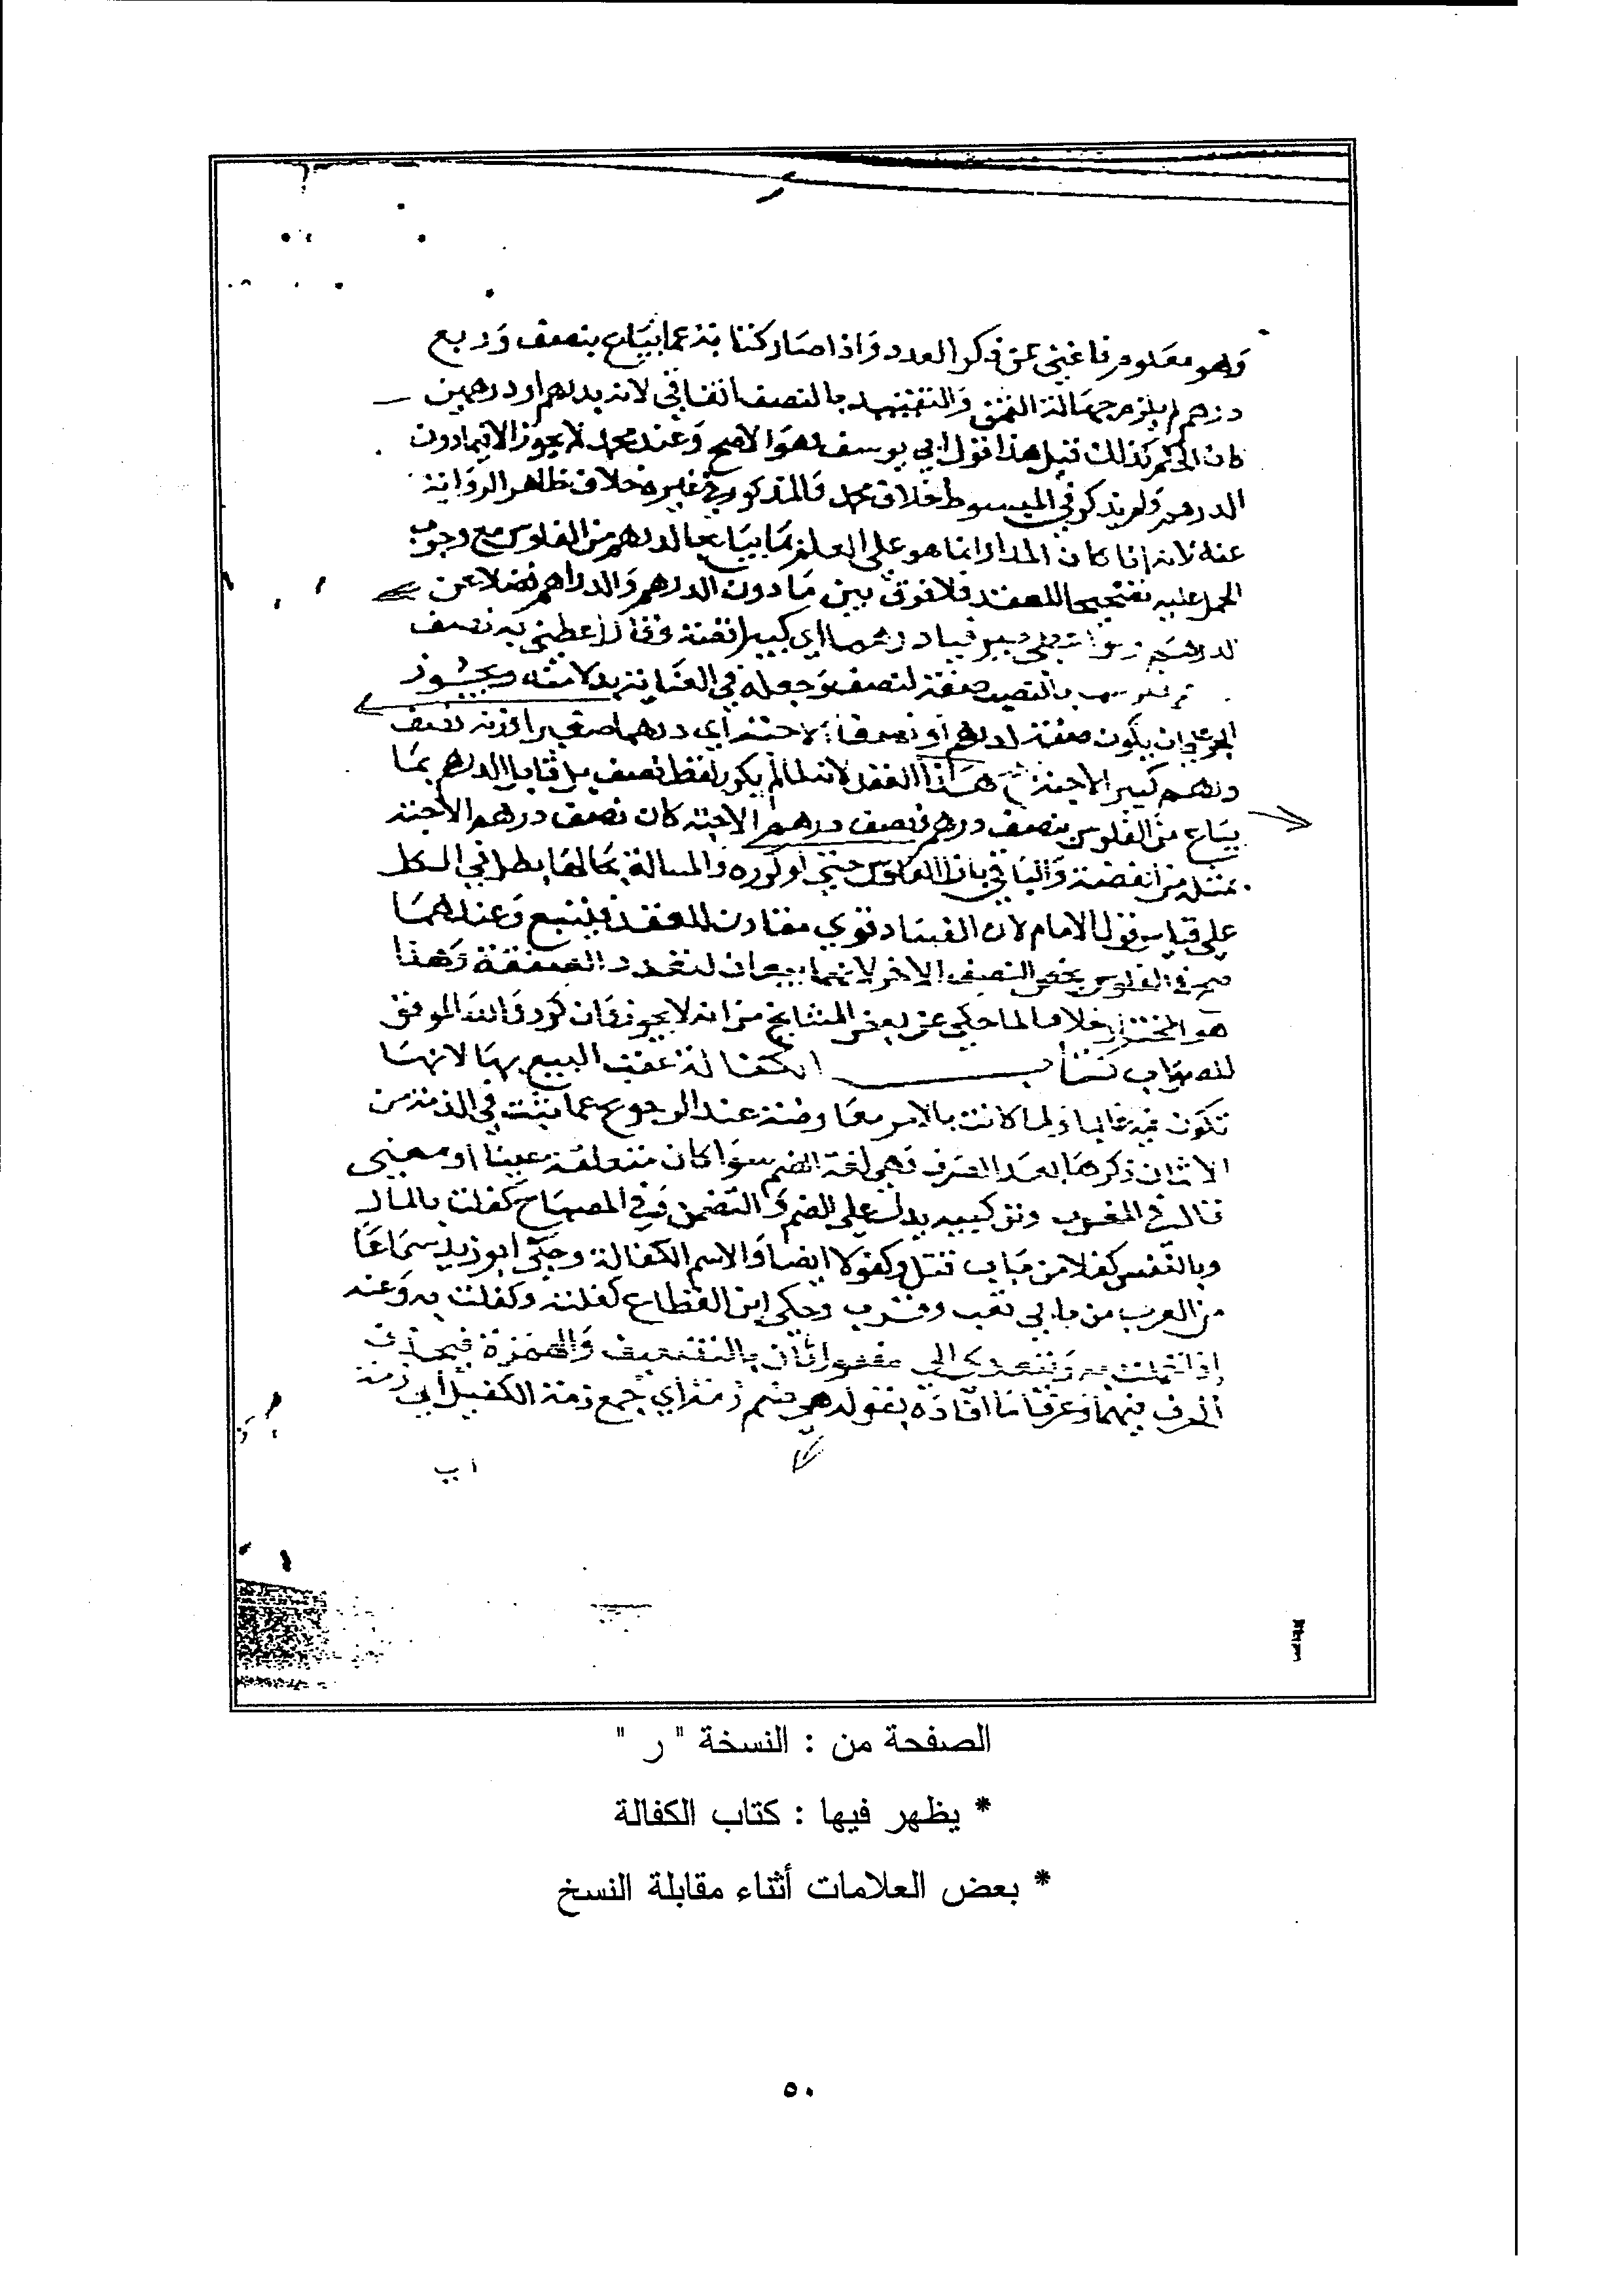 وهو معلوم فاغنى عن ذكر العدد واذا صار كناية عما يباع بنصف وربع
درهم لم يلزم جهالة الثمن والتقييد بالنصف اتفاقي لانه بدرهم او درهمين
كان الحكم كذلك قيل هذا قول ابي يوسف وهو الاصح وعند محمد لا يجوز الا فيما دون
الدرهم ولم يذكر في المبسوط خلاف محمد فالمذكور في غيره خلاف ظاهر الرواية
عنه لانه اذا كان المدار انما هو على العلم بما يباع بالدرهم من الفلوس مع وجوب
الحمل عليه تصحيحا للعقد فلا فرق بين ما دون الدرهم والدراهم فضلا عن
الدرهم درهما اي كبيرا فضة وقال اعطني به نصف
بالنصب صفة لنصف وجعله في العناية بدلا منه ويجوز
الجر على ان يكون صفة لدرهم او نصفا الا حبة اي درهما صغيرا وزنه نصف
درهم كبير الا حبة صح هذا العقد لانه لما لم يكرر لفظ نصف بل قابل الدرهم بما
يباع من الفلوس بنصف درهم وبنصف درهم الا حبة كان نصف درهم الا حبة
بمثله من الفضة والباقي بازاء الفلوس حتى لو كرره والمسالة بحالها بطل في الكل
على قياس قول الامام لان الفساد قوي مقارن للعقد فيتبع وعندهما
صح في الفلوس يخص النصف الاخر لانهما بيعان لتعدد الصفقة وهذا
هو المختار خلافا لما حكى عن بعض المشايخ من انه لا يجوز وان كرر والله الموفق
للصواب كتاب الكفالة عقب البيع بها لانها
تكون فيه غالبا ولما كانت بالامر معاوضة عند الرجوع عما يثبت في الذمة من
الاثمان ذكرها بعد الصرف وهي لغة الضم سوا كان متعلقه عينا او معنى
قال في المغرب وتركيبه يدل على الضم والتضمن وفي المصباح كفلت بالمال
وبالنفس كفلا من باب قتل وكفولا ايضا والاسم الكفالة وحكى ابو زيد سماعا
من العرب من بابي تعب وقرب وحكى ابن القطاع كفلته وكفلت به وعنه
اذا تحملت به ويتعدى الى مفعول ثان بالتضعيف والهمزة فيحذف
الحرف فيهما وعرفا ما افاده بقوله هي ضم ذمة اي جمع ذمة الكفيل الى ذمة
الصفحة من : النسخة " ر "
* يظهر فيها : كتاب الكفالة
* بعض العلامات أثناء مقابلة النسخ
٥٠